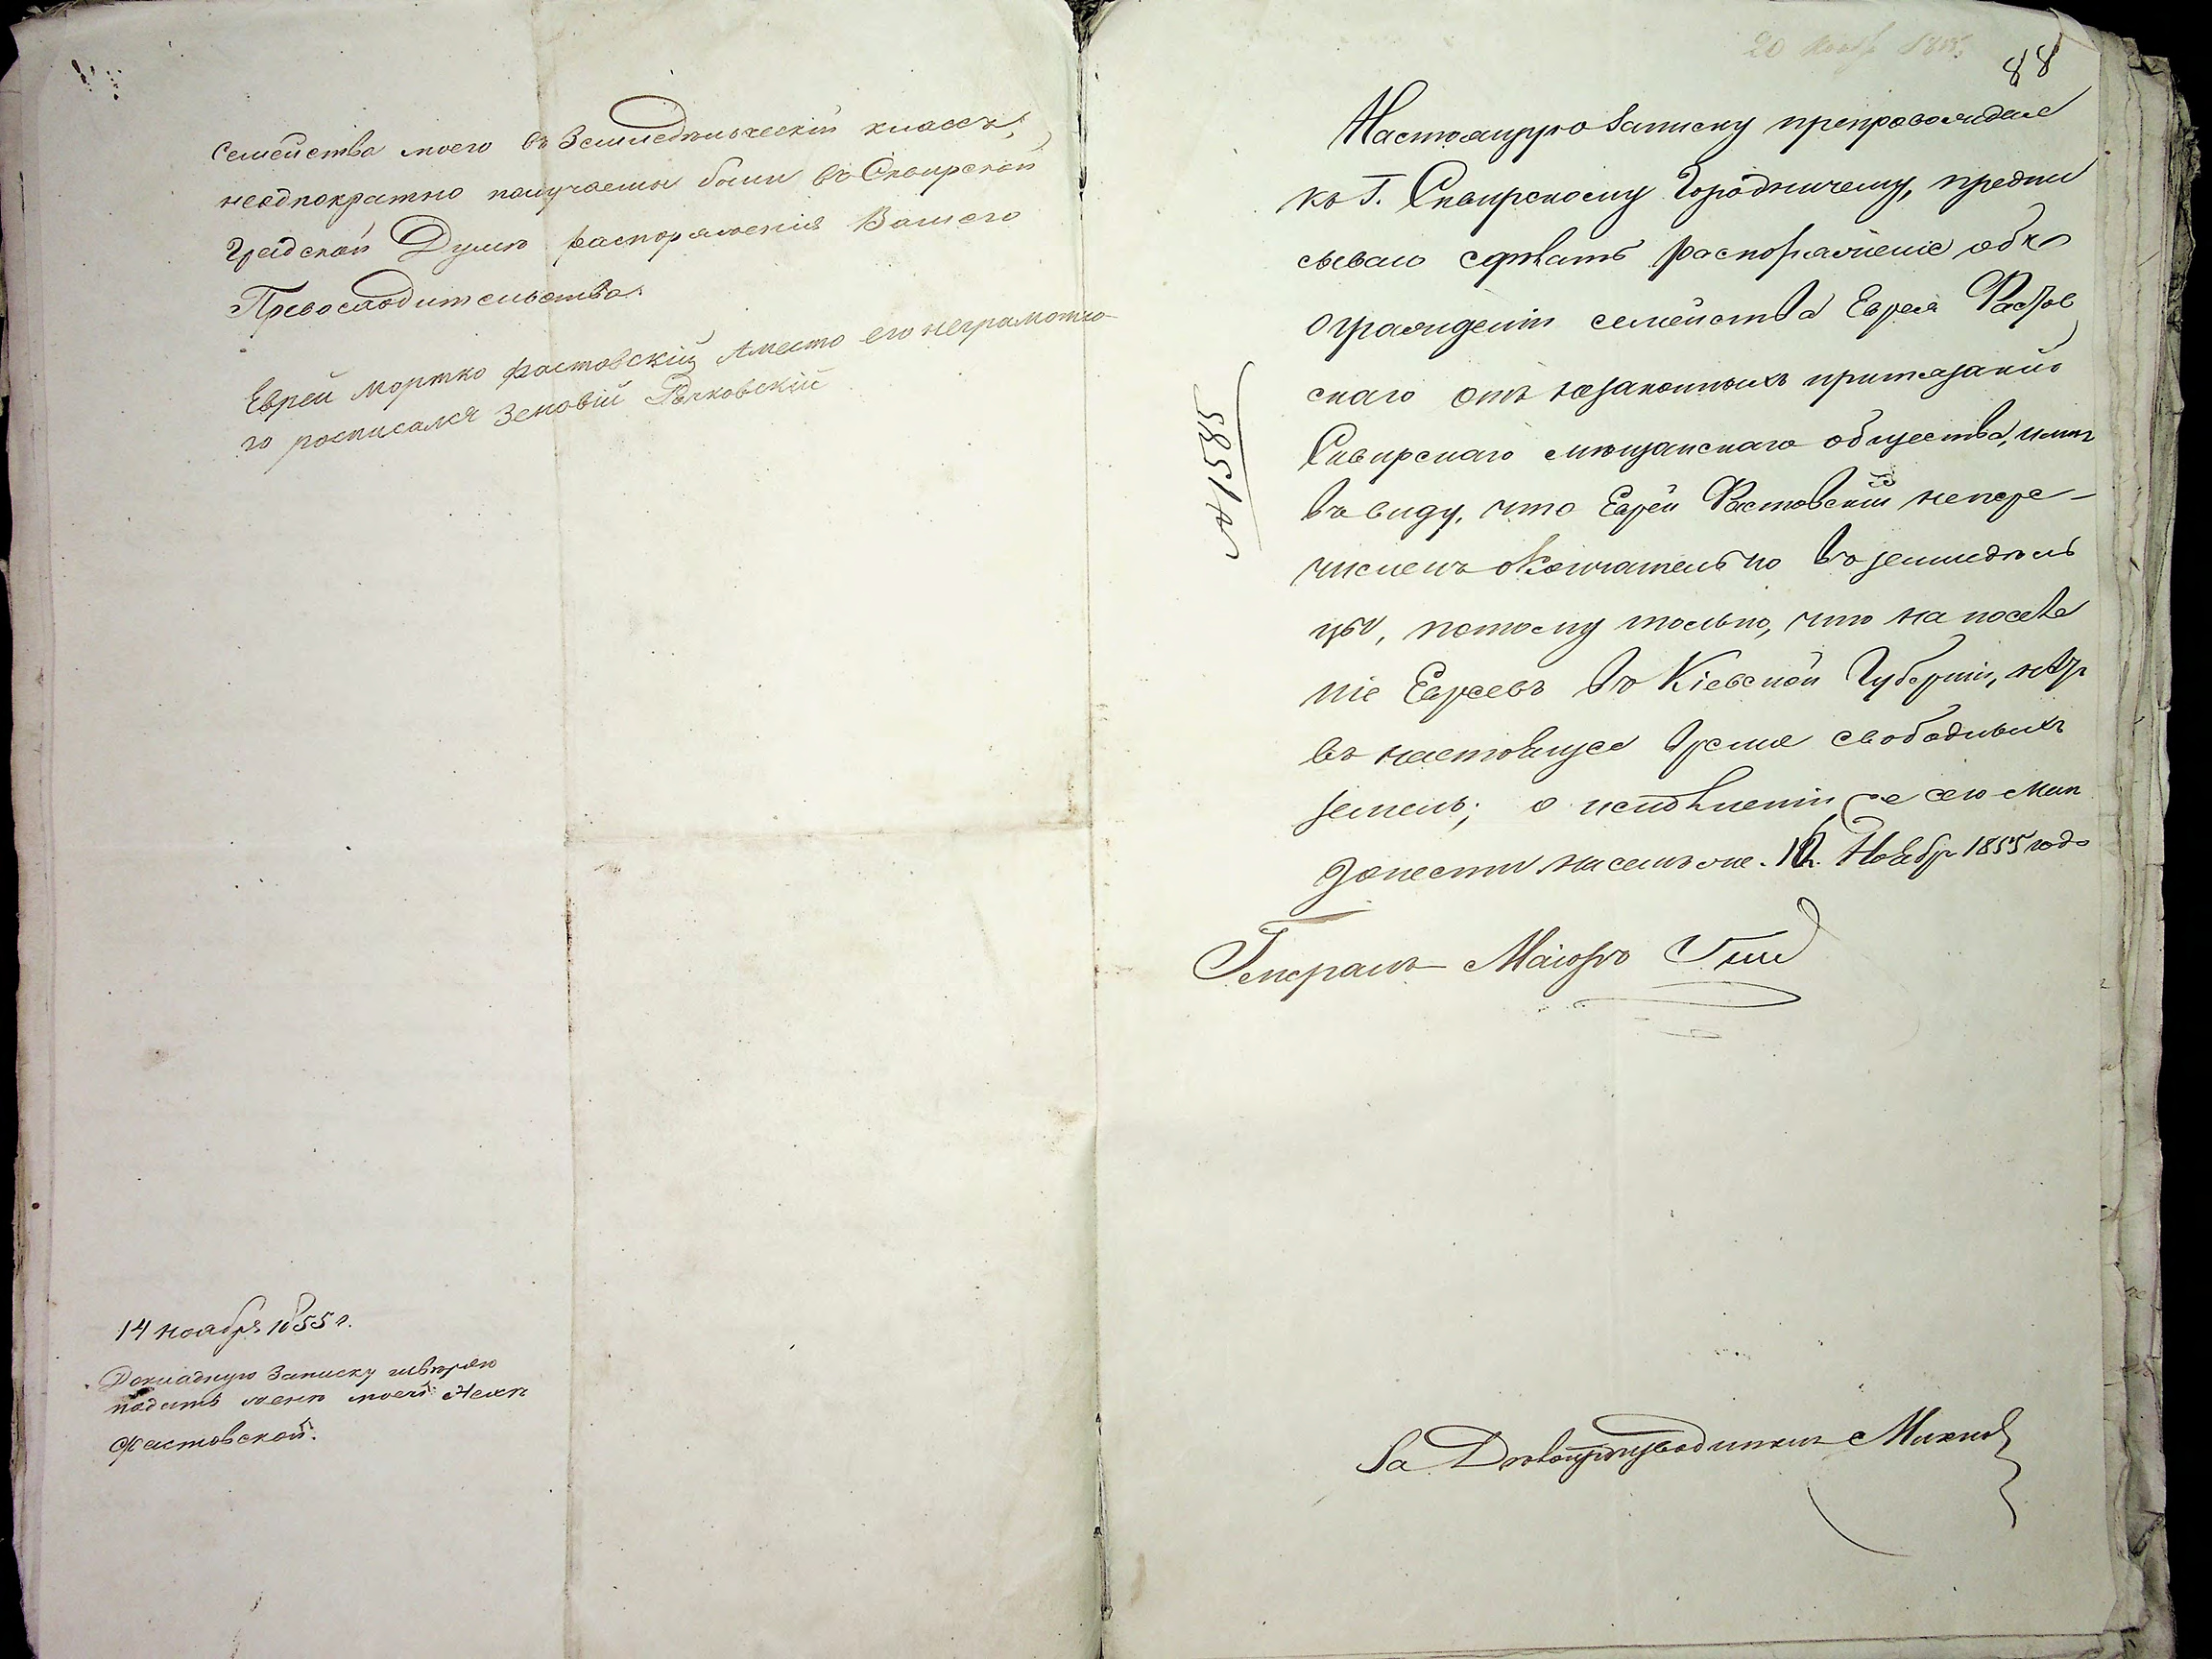 семейства моего въ Земледѣльческій классъ,
неоднократно получаемы были въ Сквирской
Градской Думѣ распоряженія Вашего
Превосходительства.
Еврей Мортко Фастовскій Аместо его неграмотно
го росписался Зеновій
14 ноября 1855 г.
Докладную Записку ввѣряю
подать женѣ моей
Фастовской.
20 Нояб. 1855
88
Настоящую Записку препровождая
къ Г. Сквирскому Городничему, предпи
сываю сдѣлать распоряженіе объ
огражденіи семейства Еврея Фастов
скаго отъ незаконныхъ притязаній
Сквирскаго мѣщанскаго общества, имѣя
въ виду, что Еврей Фастовскій непере-
численъ окончательно въ земледѣль
цы, потому только, что на поселе
ніе Евреевъ въ Кіевской Губерніи, нѣтъ
въ настоящее время свободныхъ
земель; о исполненіи же сего мнѣ
донести на семъ же. Ноябр. 1855 года
№ 1585
Генералъ Маіоръ
За Дѣлопроизводителя